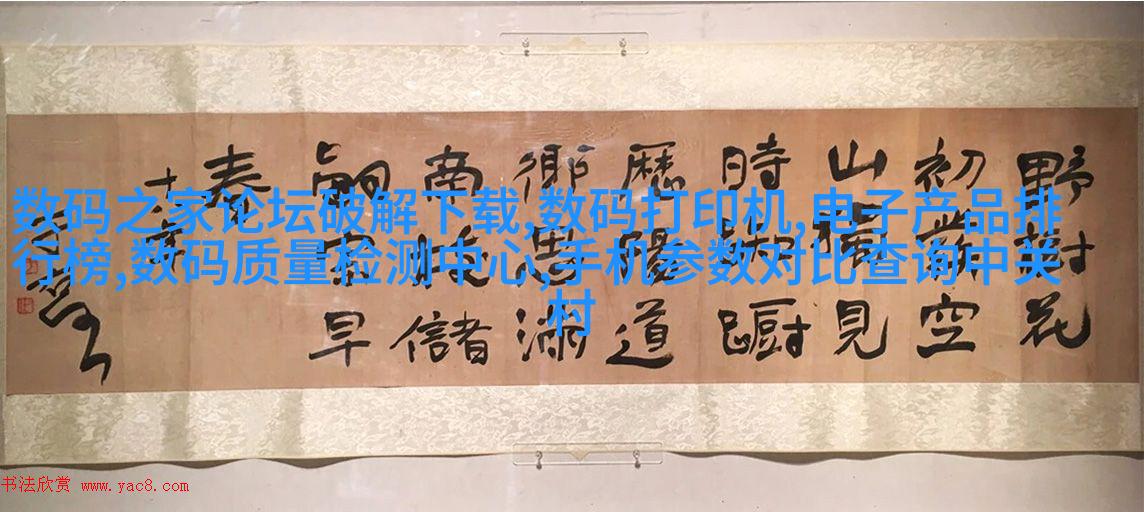 野對花
初空
山獨見
時踟躕
歷陽道
鄉思滿
南枝儲
嗣早
春
数码之家论坛破解下载,数码打印机,电子产品排
行榜,数码质量检测中心,手机参数对比查询中关
村
书法欣赏 www.yac8.com